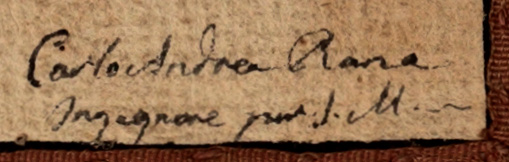 Carlo Andrea Rana
Ingegnere per S. M.